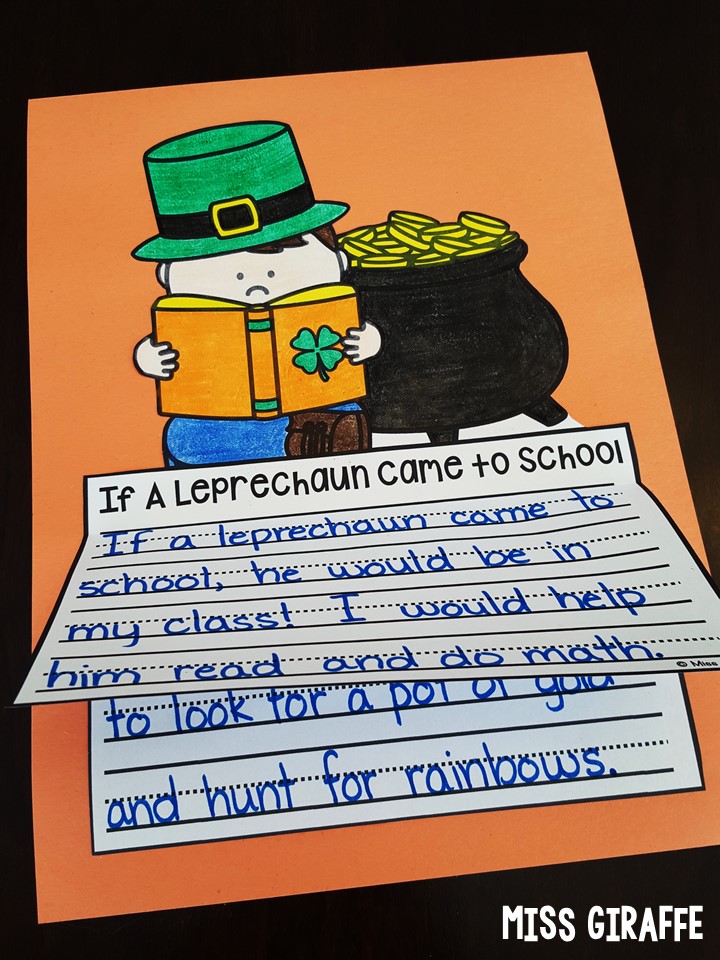 If A Leprechaun Came to School
If a leprechaun came to
school, he would be in
my class! I would help
him read and do math.
© Miss
to look for a pot of gold
and hunt for rainbows.
MISS GIRAFFE